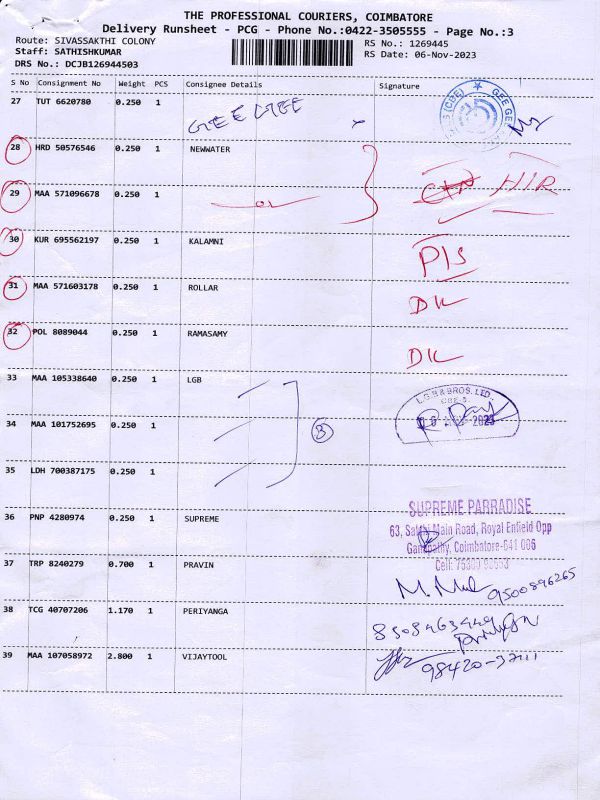 THE PROFESSIONAL COURIERS, COIMBATORE
Delivery Runsheet - PCG - Phone No.:0422-3505555 - Page No.:3
Route: SIVASSAKTHI COLONY
RS No.: 1269445
Staff: SATHISHKUMAR
RS Date: 06-Nov-2023
DRS No.: DCJB126944503
S No Consignment No Weight PCS Consignee Details Signature
27 TUT 6620780 0.250 1 GEE GEE
28 HRD 50576546 0.250 1 NEWWATER
29 MAA 571096678 0.250 1
30 KUR 695562197 0.250 1 KALAMNI P/S
31 MAA 571603178 0.250 1 ROLLAR DK
32 POL 8089044 0.250 1 RAMASAMY DK
33 MAA 105338640 0.250 1 LGB
L.G.B & BROS. LTD.
34 MAA 101752695 0.250 1 3
35 LDH 700387175 0.250 1
36 PNP 4280974 0.250 1 SUPREME
SUPREME PARRADISE
63, Sathi Main Road, Royal Enfield Opp
Ganapathy, Coimbatore-641 006
37 TRP 8240279 0.700 1 PRAVIN
9500896265
38 TCG 40707206 1.170 1 PERIYANGA
39 MAA 107058972 2.800 1 VIJAYTOOL